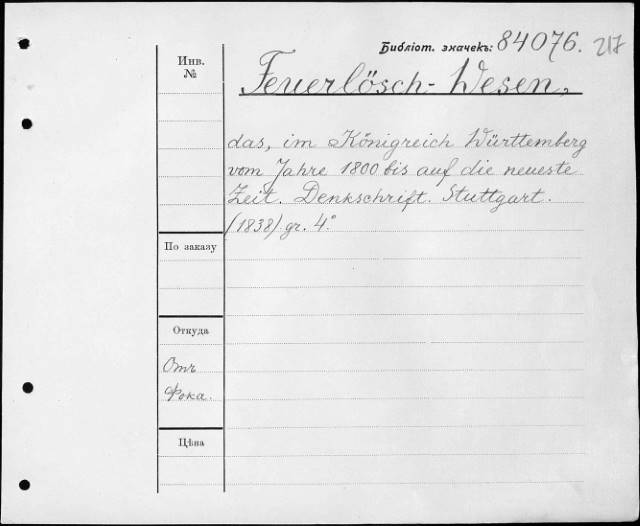 Библіот. значекъ: 84076. 217
Инв.
№
Feuerlösch-Wesen,
das, im Königreich Württemberg
vom Jahre 1800 bis auf die neueste
Zeit. Denkschrift. Stuttgart.
(1838) gr. 4°
По заказу
Откуда
Отъ
Фока.
Цѣна